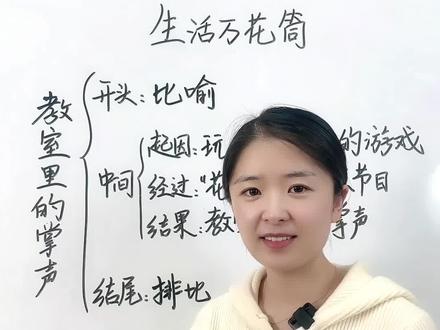 生活万花筒
教室里的掌声
开头：比喻
中间
起因：玩 的游戏
经过：“花 节目
结果：教 掌声
结尾：排比